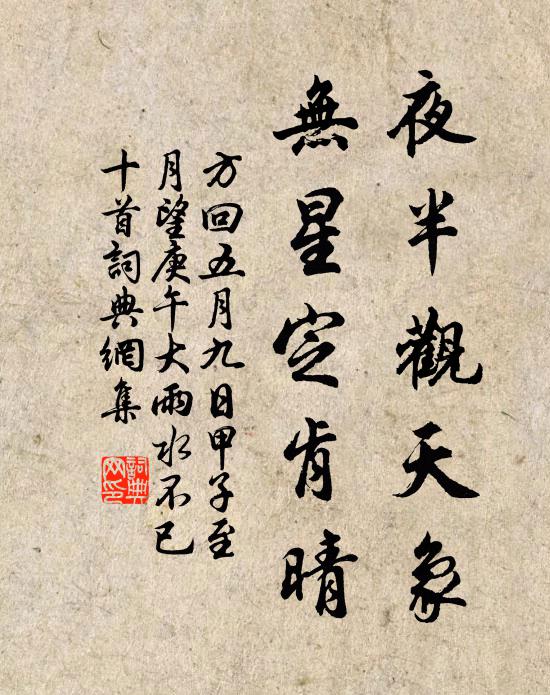 夜半觀天象
無星定肯晴
方回五月九日甲子至
月望庚午大雨水不已
十首詞典網集
詞典
网印